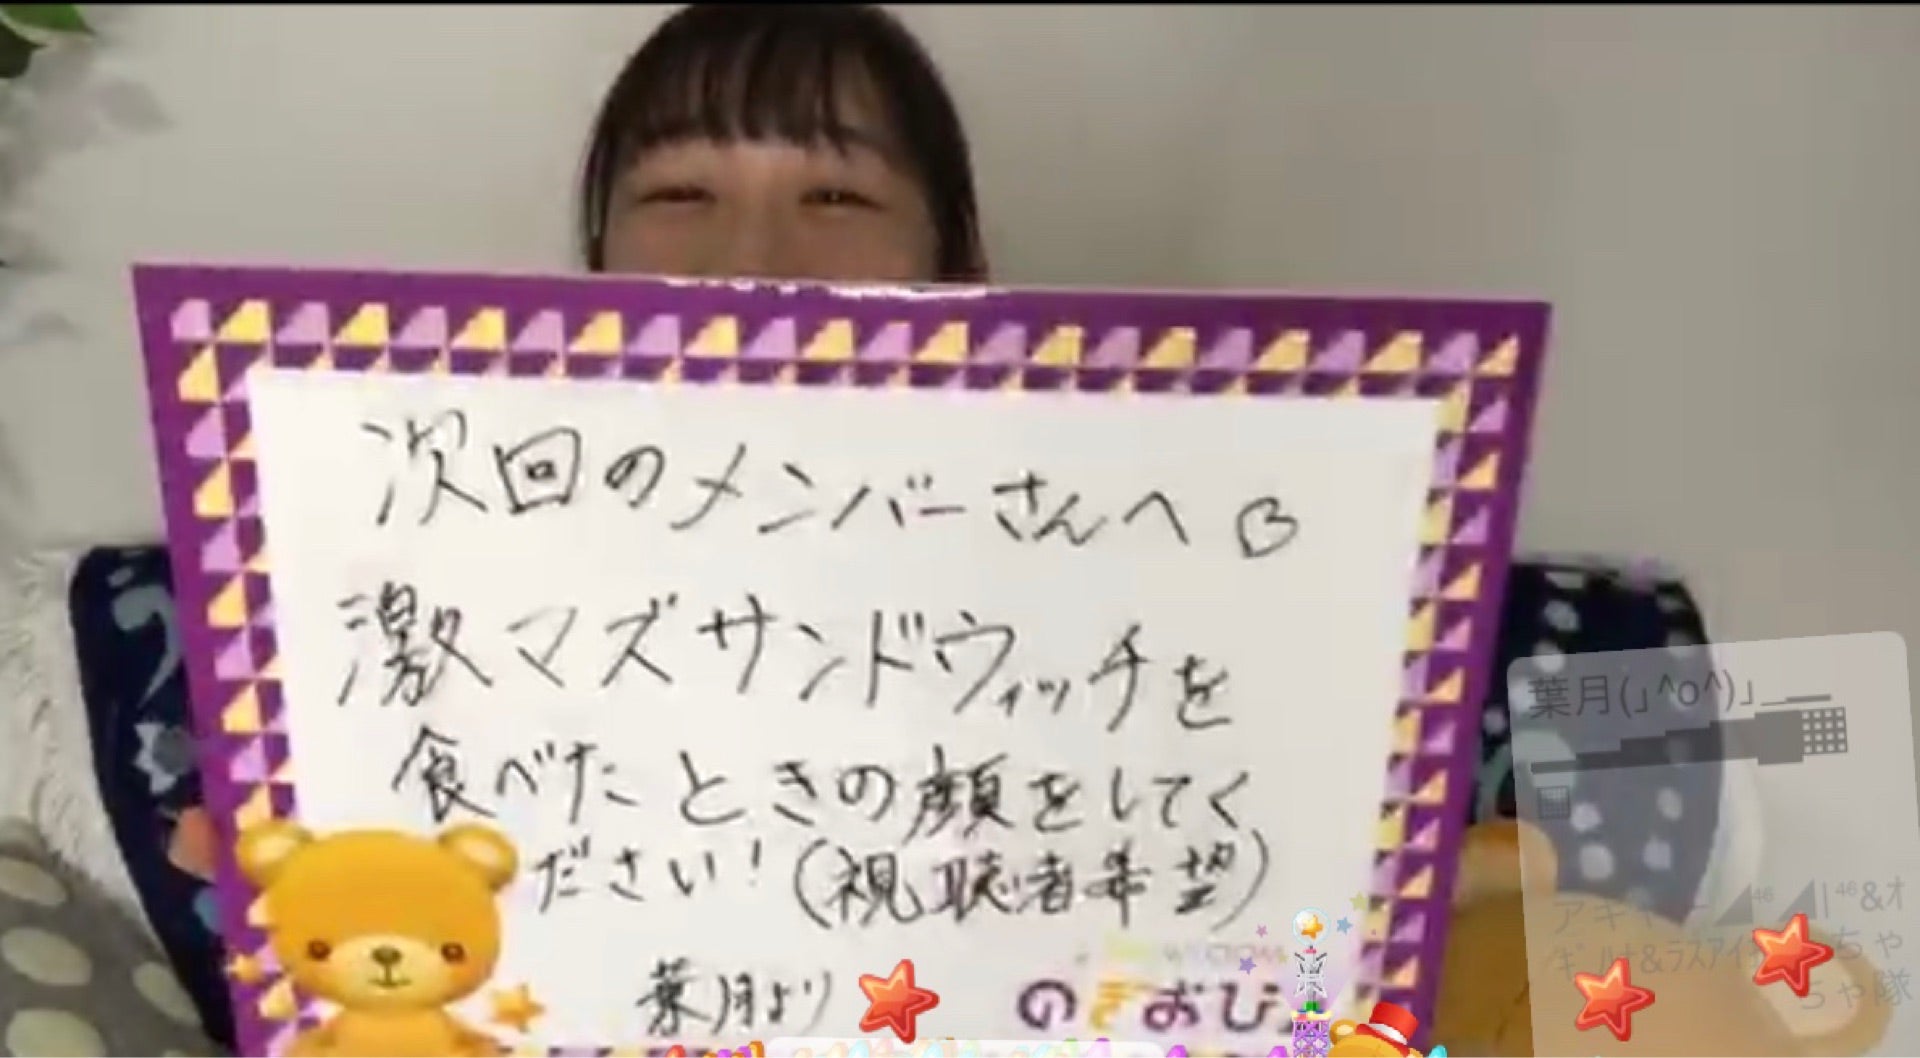 次回のメンバーさんへ
激マズサンドウィッチを
食べたときの顔をしてく
ださい！(視聴者希望)
葉月より
のぎおび
葉月(｣^o^)｣